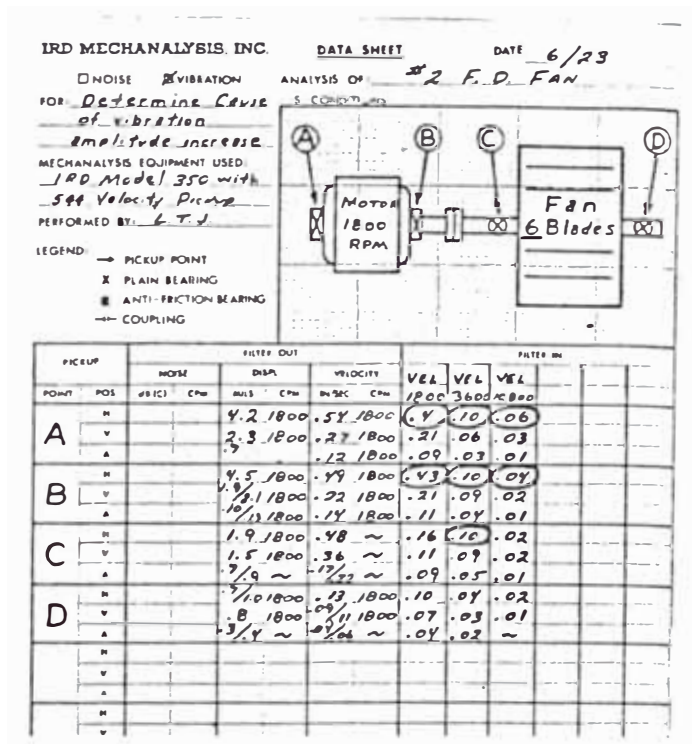 IRD MECHANALYSIS, INC.
DATA SHEET
DATE 6/23
NOISE VIBRATION
ANALYSIS OF #2 F. D. FAN
FOR: Determine Cause
of vibration
amplitude increase
MECHANALYSIS EQUIPMENT USED:
IRD Model 350 with
544 Velocity Pickup
PERFORMED BY:
LEGEND:
PICKUP POINT
X PLAIN BEARING
ANTI-FRICTION BEARING
COUPLING
A B C D
MOTOR
1800
RPM
Fan
6 Blades
PICKUP FILTER OUT FILTER IN
NOISE DISPL VELOCITY VEL VEL VEL
POINT POS dB(C) CPM MILS CPM IN/SEC CPM 1800 3600 10800
A
H 4.2 1800 .54 1800 .4 .10 .06
V 2.3 1800 .27 1800 .21 .06 .03
A .12 1800 .09 .03 .01
B
H 4.5 1800 .49 1800 .43 .10 .04
V 1800 .22 1800 .21 .09 .02
A 1800 .14 1800 .11 .04 .01
C
H 1.9 1800 .48 ~ .16 .10 .02
V 1.5 1800 .36 ~ .11 .09 .02
A .7/.9 ~ .17/.22 ~ .09 .05 .01
D
H 1800 .13 1800 .10 .04 .02
V .8 1800 .09/.11 1800 .07 .03 .01
A .3/.4 ~ ~ .04 .02 ~
H
V
A
H
V